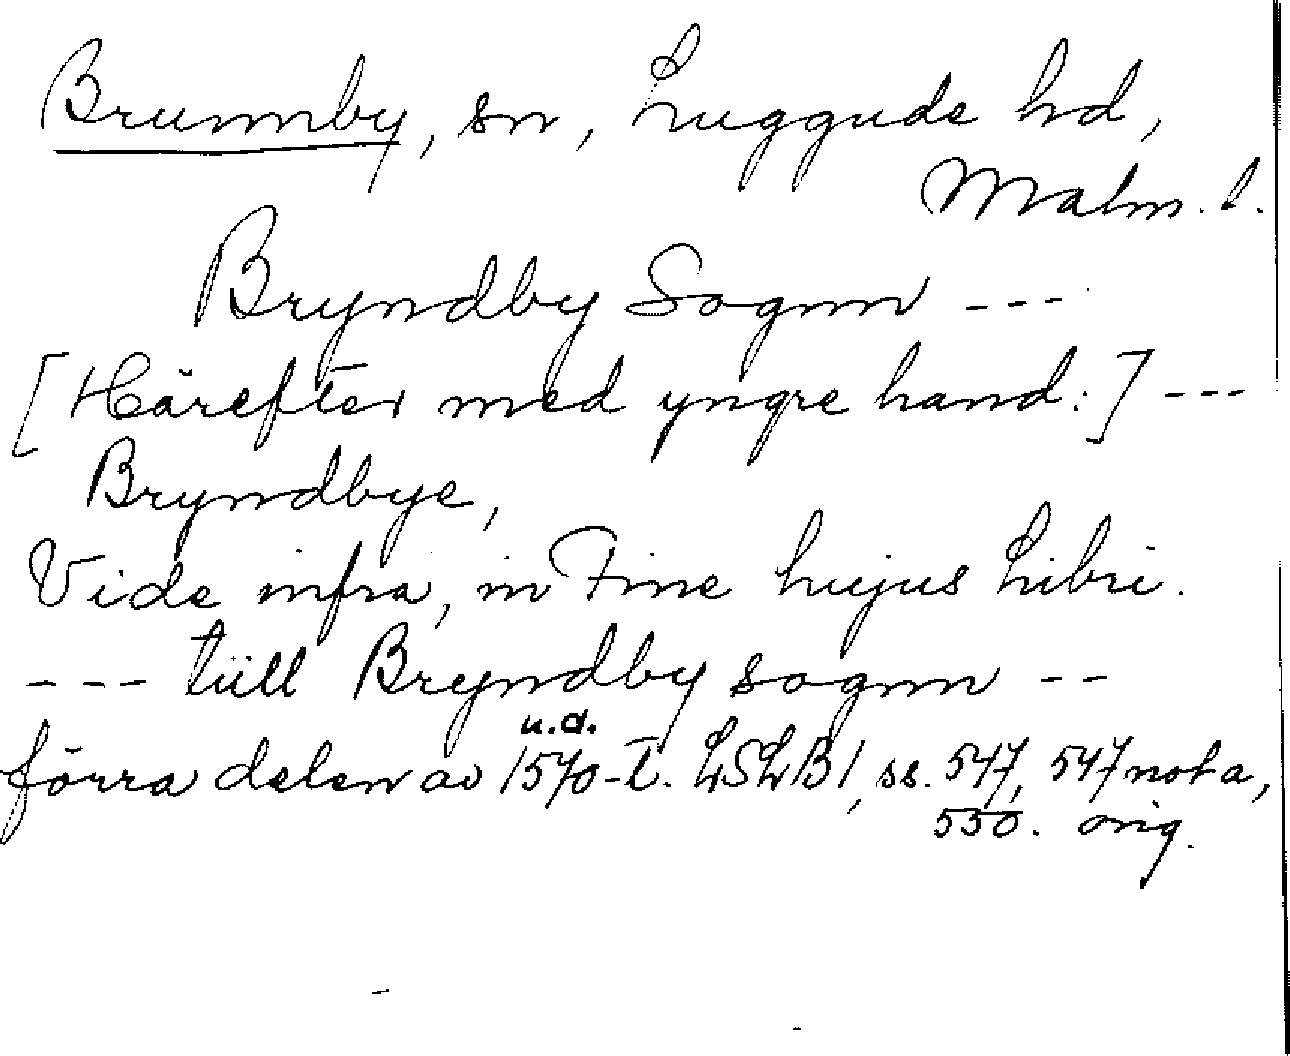 Brunnby, sn, Luggude hd,
Malm. l.
Bryndby Sognn ---
[Härefter med yngre hand:] ---
Bryndbye,
Vide infra, in Fine hujus Libri.
--- tiill Bryndby sognn --
u.d.
förra delen av 1570-t. LSLB1, ss. 547, 547 nota,
550. orig.